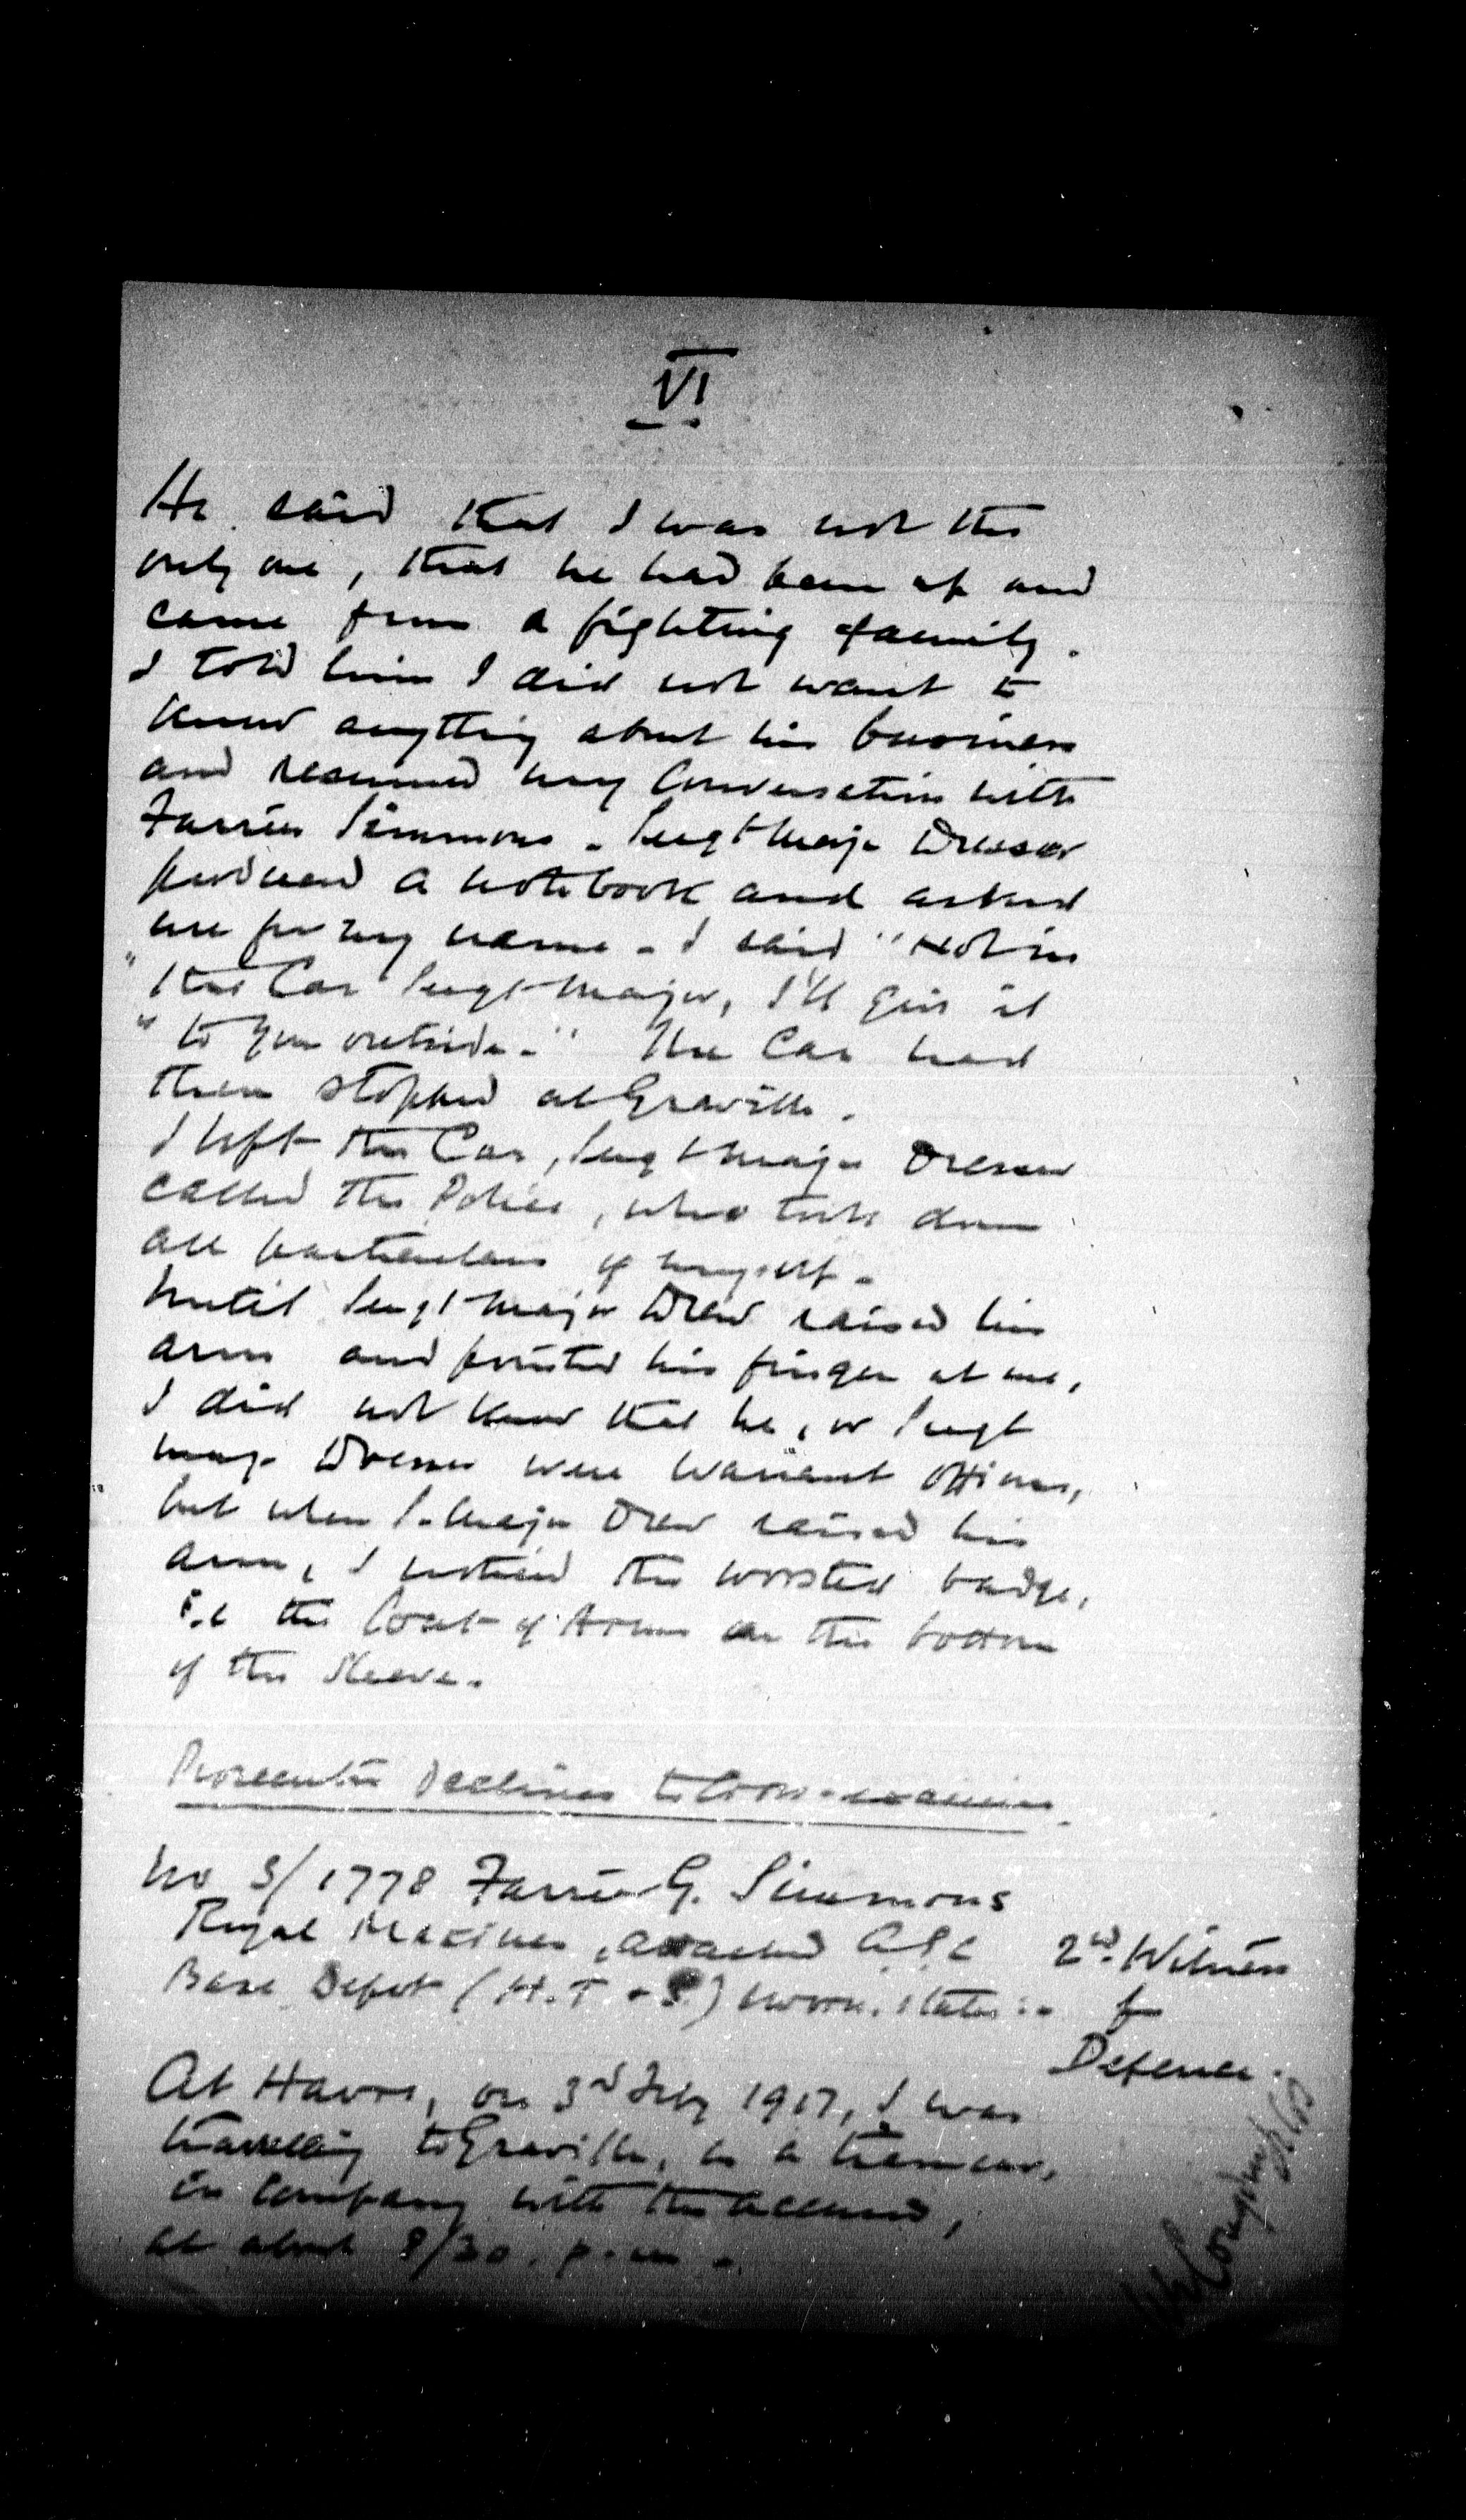 VI
He said that I was not the
only one, that he had been up and
came from a fighting family.
I told him I did not want to
know anything about his business
and resumed my conversation with
Farrier Simmons. Sergt Major Dresser
produced a notebook and asked
me for my name. I said "Not in
"the Car Sergt-Major, I'll give it
"to you outside." The Car had
then stopped at Graville.
I left the Car, Sergt Major Dresser
called the Police, who took down
all particulars of myself.
Until Sergt Major Drew raised his
arm and pointed his finger at me,
I did not know that he, or Sergt
Maj. Dresser were Warrant Officers,
but when S. Major Drew raised his
arm, I noticed the worsted badge,
i.e the Coat of Arms on the bottom
of the sleeve.
Prosecutor declines to Cross-examine.
No S/1778 Farrier G. Simmons
Royal Marines, attached A.S.C 2nd. Witness
Base Depot (H.T & S.) sworn, states:- for
Defence.
At Havre, on 3rd Feby 1917, I was
travelling to Graville, in a tramcar,
in company with the accused,
at about 8/30. p.m.